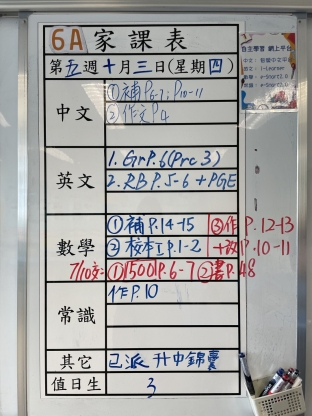 6A 家課表
第五週十月三日(星期四)
中文
①補P6-7; P10-11
②作文P4
英文
1. Gr P.6 (Prc 3)
2. RB P.5-6 + PGE
數學
①補P.14-15
③作P.12-13
②校本工P.1-2
+放P.10-11
7/10交:
①1500工P.6-7 ②書P.48
常識
作P.10
其它
已派 升中錦囊
值日生
3
自主學習 網上平台